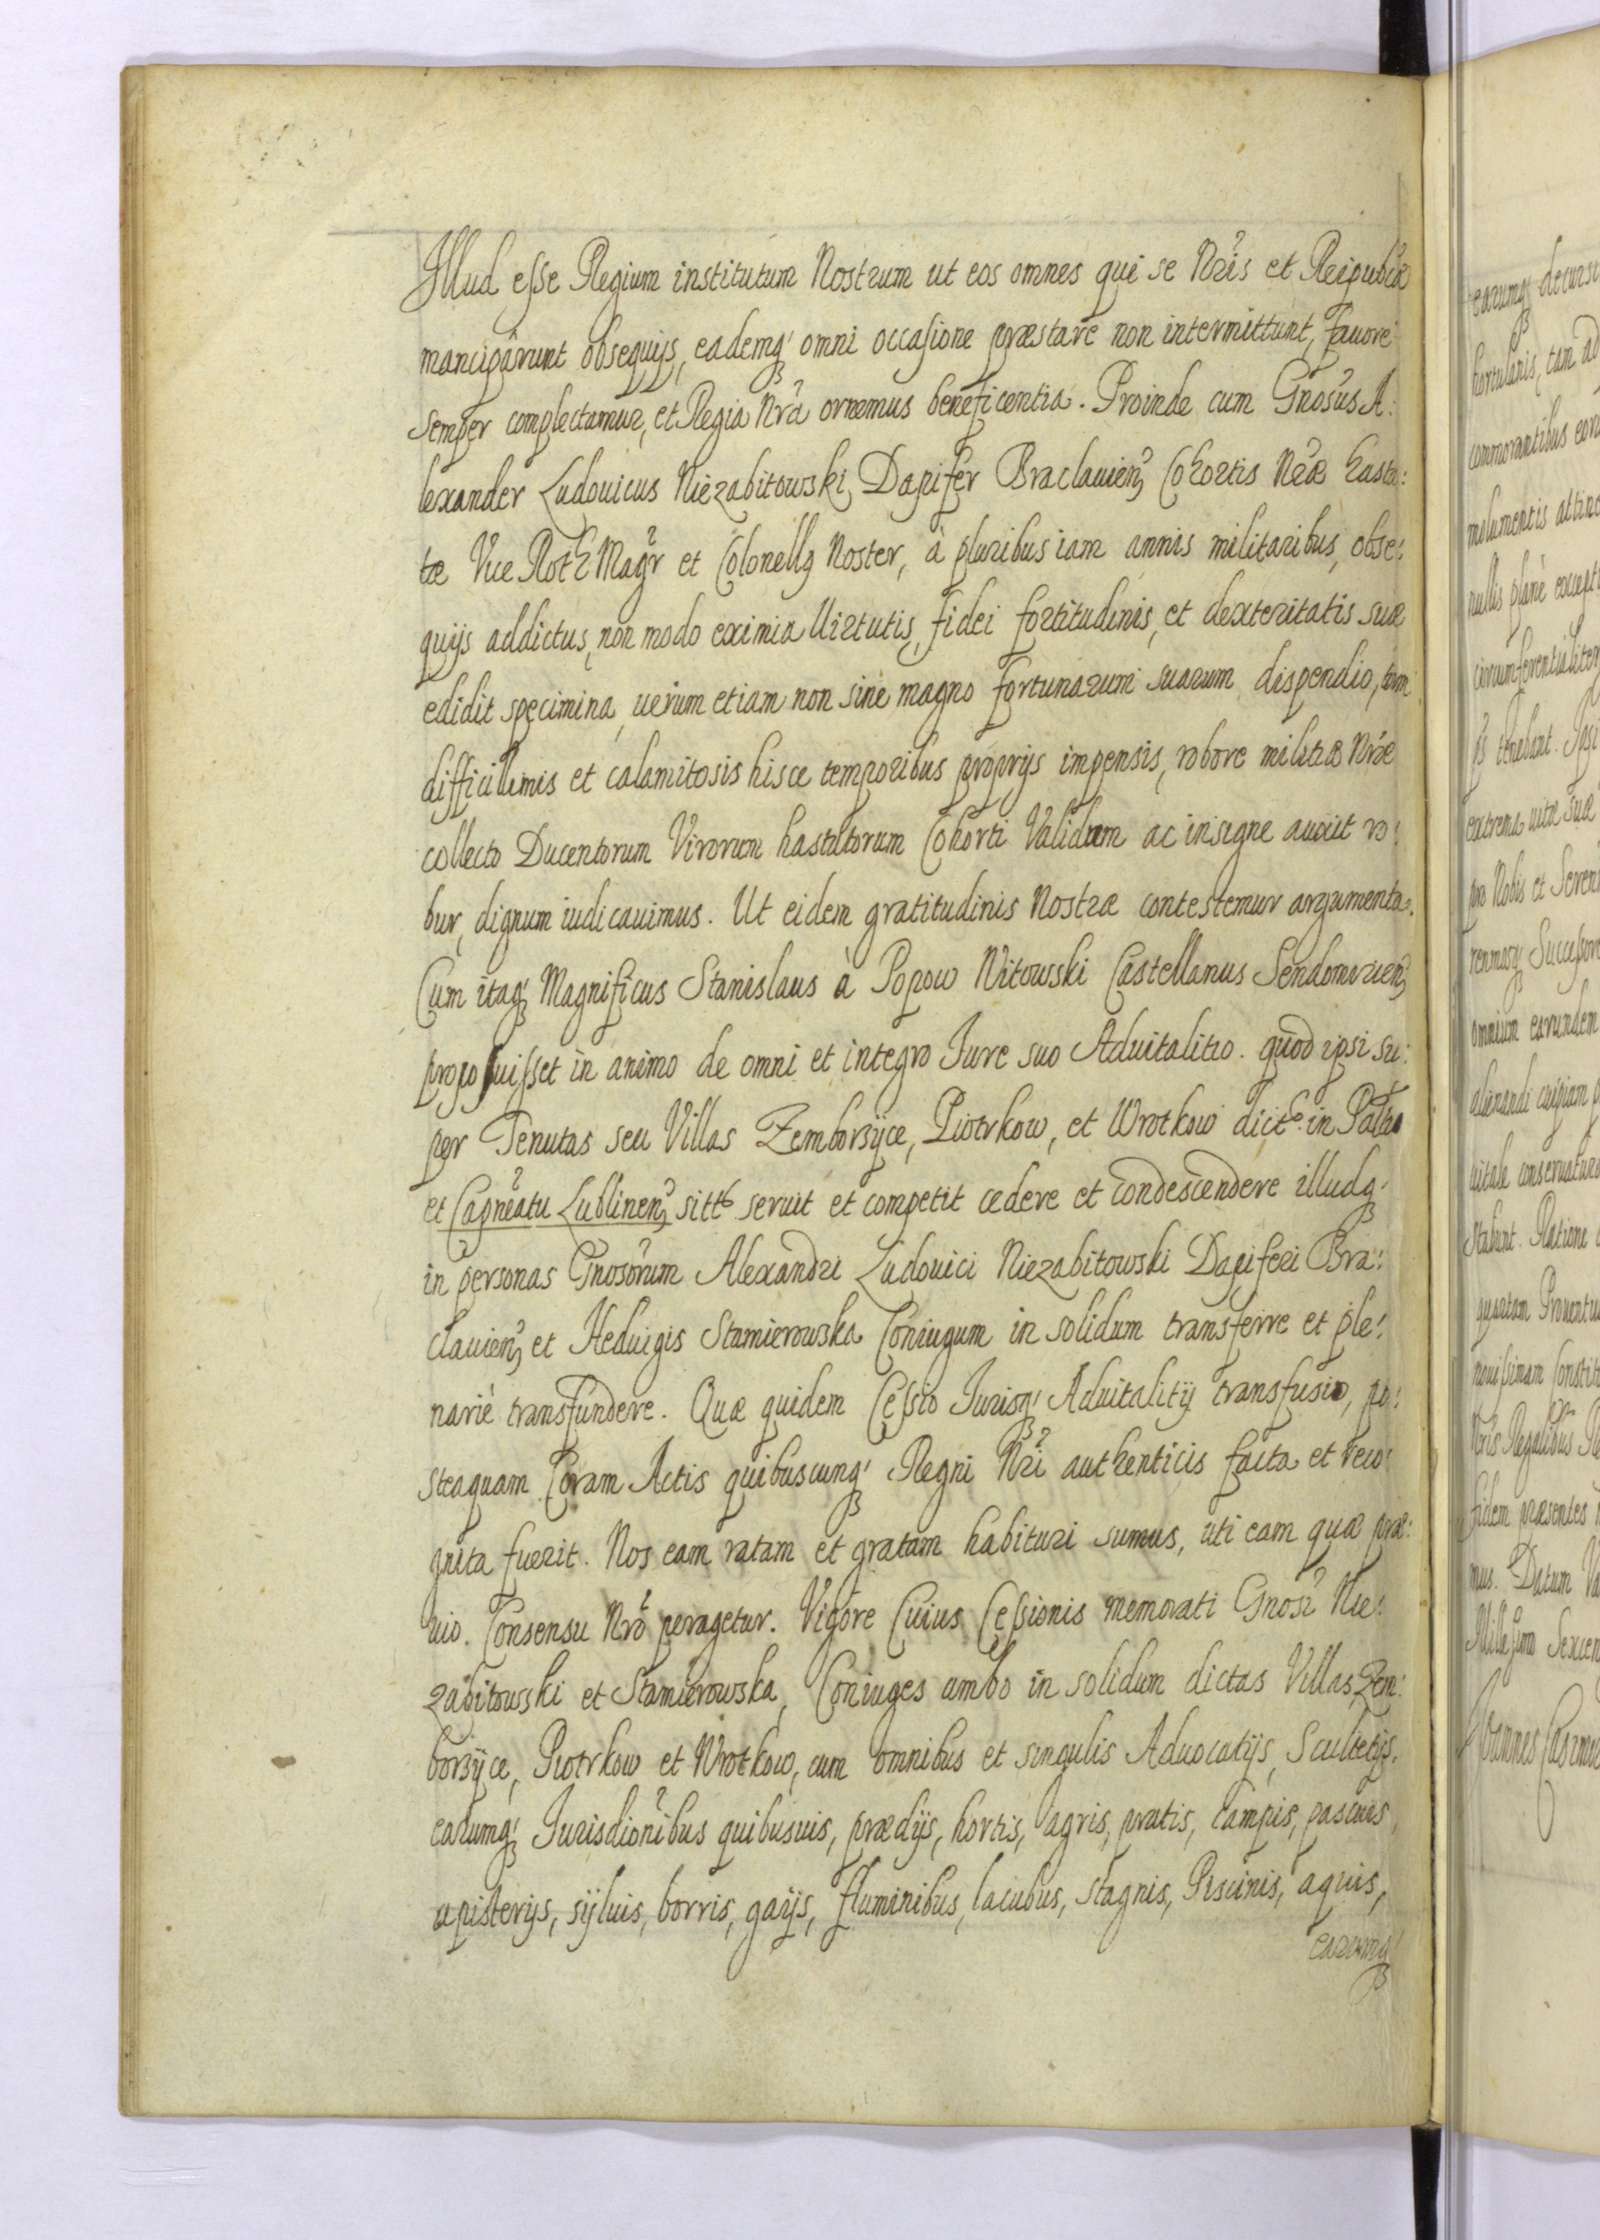 Illud esse Regium institutum Nostrum ut eos omnes qui se Nris et Reipublæ
manciparunt obsequijs, eademq; omni occasione præstare non intermittunt, fauore
semper complectamur, et Regia Nra ornemus beneficentia. Proinde cum Gnosus A:
lexander Ludouicus Niezabitowski Dapifer Braclauien, Cohortis Nræ hasta:
tæ Vice Roth Magr et Colonellg Noster, à pluribus iam annis militaribus, obse:
quijs addictus, non modo eximia Uirtutis, fidei fortitudinis, et dexteritatis suæ
edidit specimina, uerum etiam non sine magno fortunarum suarum dispendio, tam
difficillimis et calamitosis hisce temporibus proprijs impensis, robore militiæ Nræ
collecto Ducentorum Virorum hastatorum Cohorti Validum ac insigne auxit ro:
bur, dignum iudicauimus. Ut eidem gratitudinis Nostræ contestemur argumenta.
Cum itaq; Magnificus Stanislaus à Popow Witowski Castellanus Sendomirien,
proposuisset in animo de omni et integro Iure suo Aduitalitio. quod ipsi su:
per Tenutas seu Villas Zemborzyce, Piotrkow, et Wrotkow dict. in Paltu
et Capneatu Lublinen, sitt. seruit et competit cedere et condescendere illudq;
in personas Gnosorum Alexandri Ludouici Niezabitowski Dapiferi Bra:
clauien, et Heduigis Stamierowska Coniugum in solidum transferre et ple:
nariè transfundere. Quæ quidem Cessio Iurisq; Aduitalitij transfusio, po:
steaquam Coram Actis quibuscunq; Regni Nri authenticis facta et reco:
gnita fuerit. Nos eam ratam et gratam habituri sumus, uti eam quæ præ:
uio. Consensu Nro peragetur. Vigore Cuius Cessionis memorati Gnosi Nie:
zabitowski et Stamierowska, Coniuges ambo in solidum dictas Villas, Zem:
borzyce, Piotrkow et Wrotkow, cum omnibus et singulis Aduocatijs, Scultetijs,
earumq; Iurisdionibus quibusuis, prædijs, hortis, agris, pratis, campis, pascuis,
apisterijs, syluis, borris, gaijs, fluminibus, lacubus, stagnis, Piscinis, aquis,
earumq;
earumq;
hortulanis, tam ad
commorantibus
attine
nullis planè
circumferentialiter
tenebant. Ipsi
extrema uitæ suæ
pro Nobis et Seren
omnium earundem
alienandi
stabunt. Ratione
Prouentu
Regalibus
fidem præsentes
mus. Datum
Millesimo Sexcen